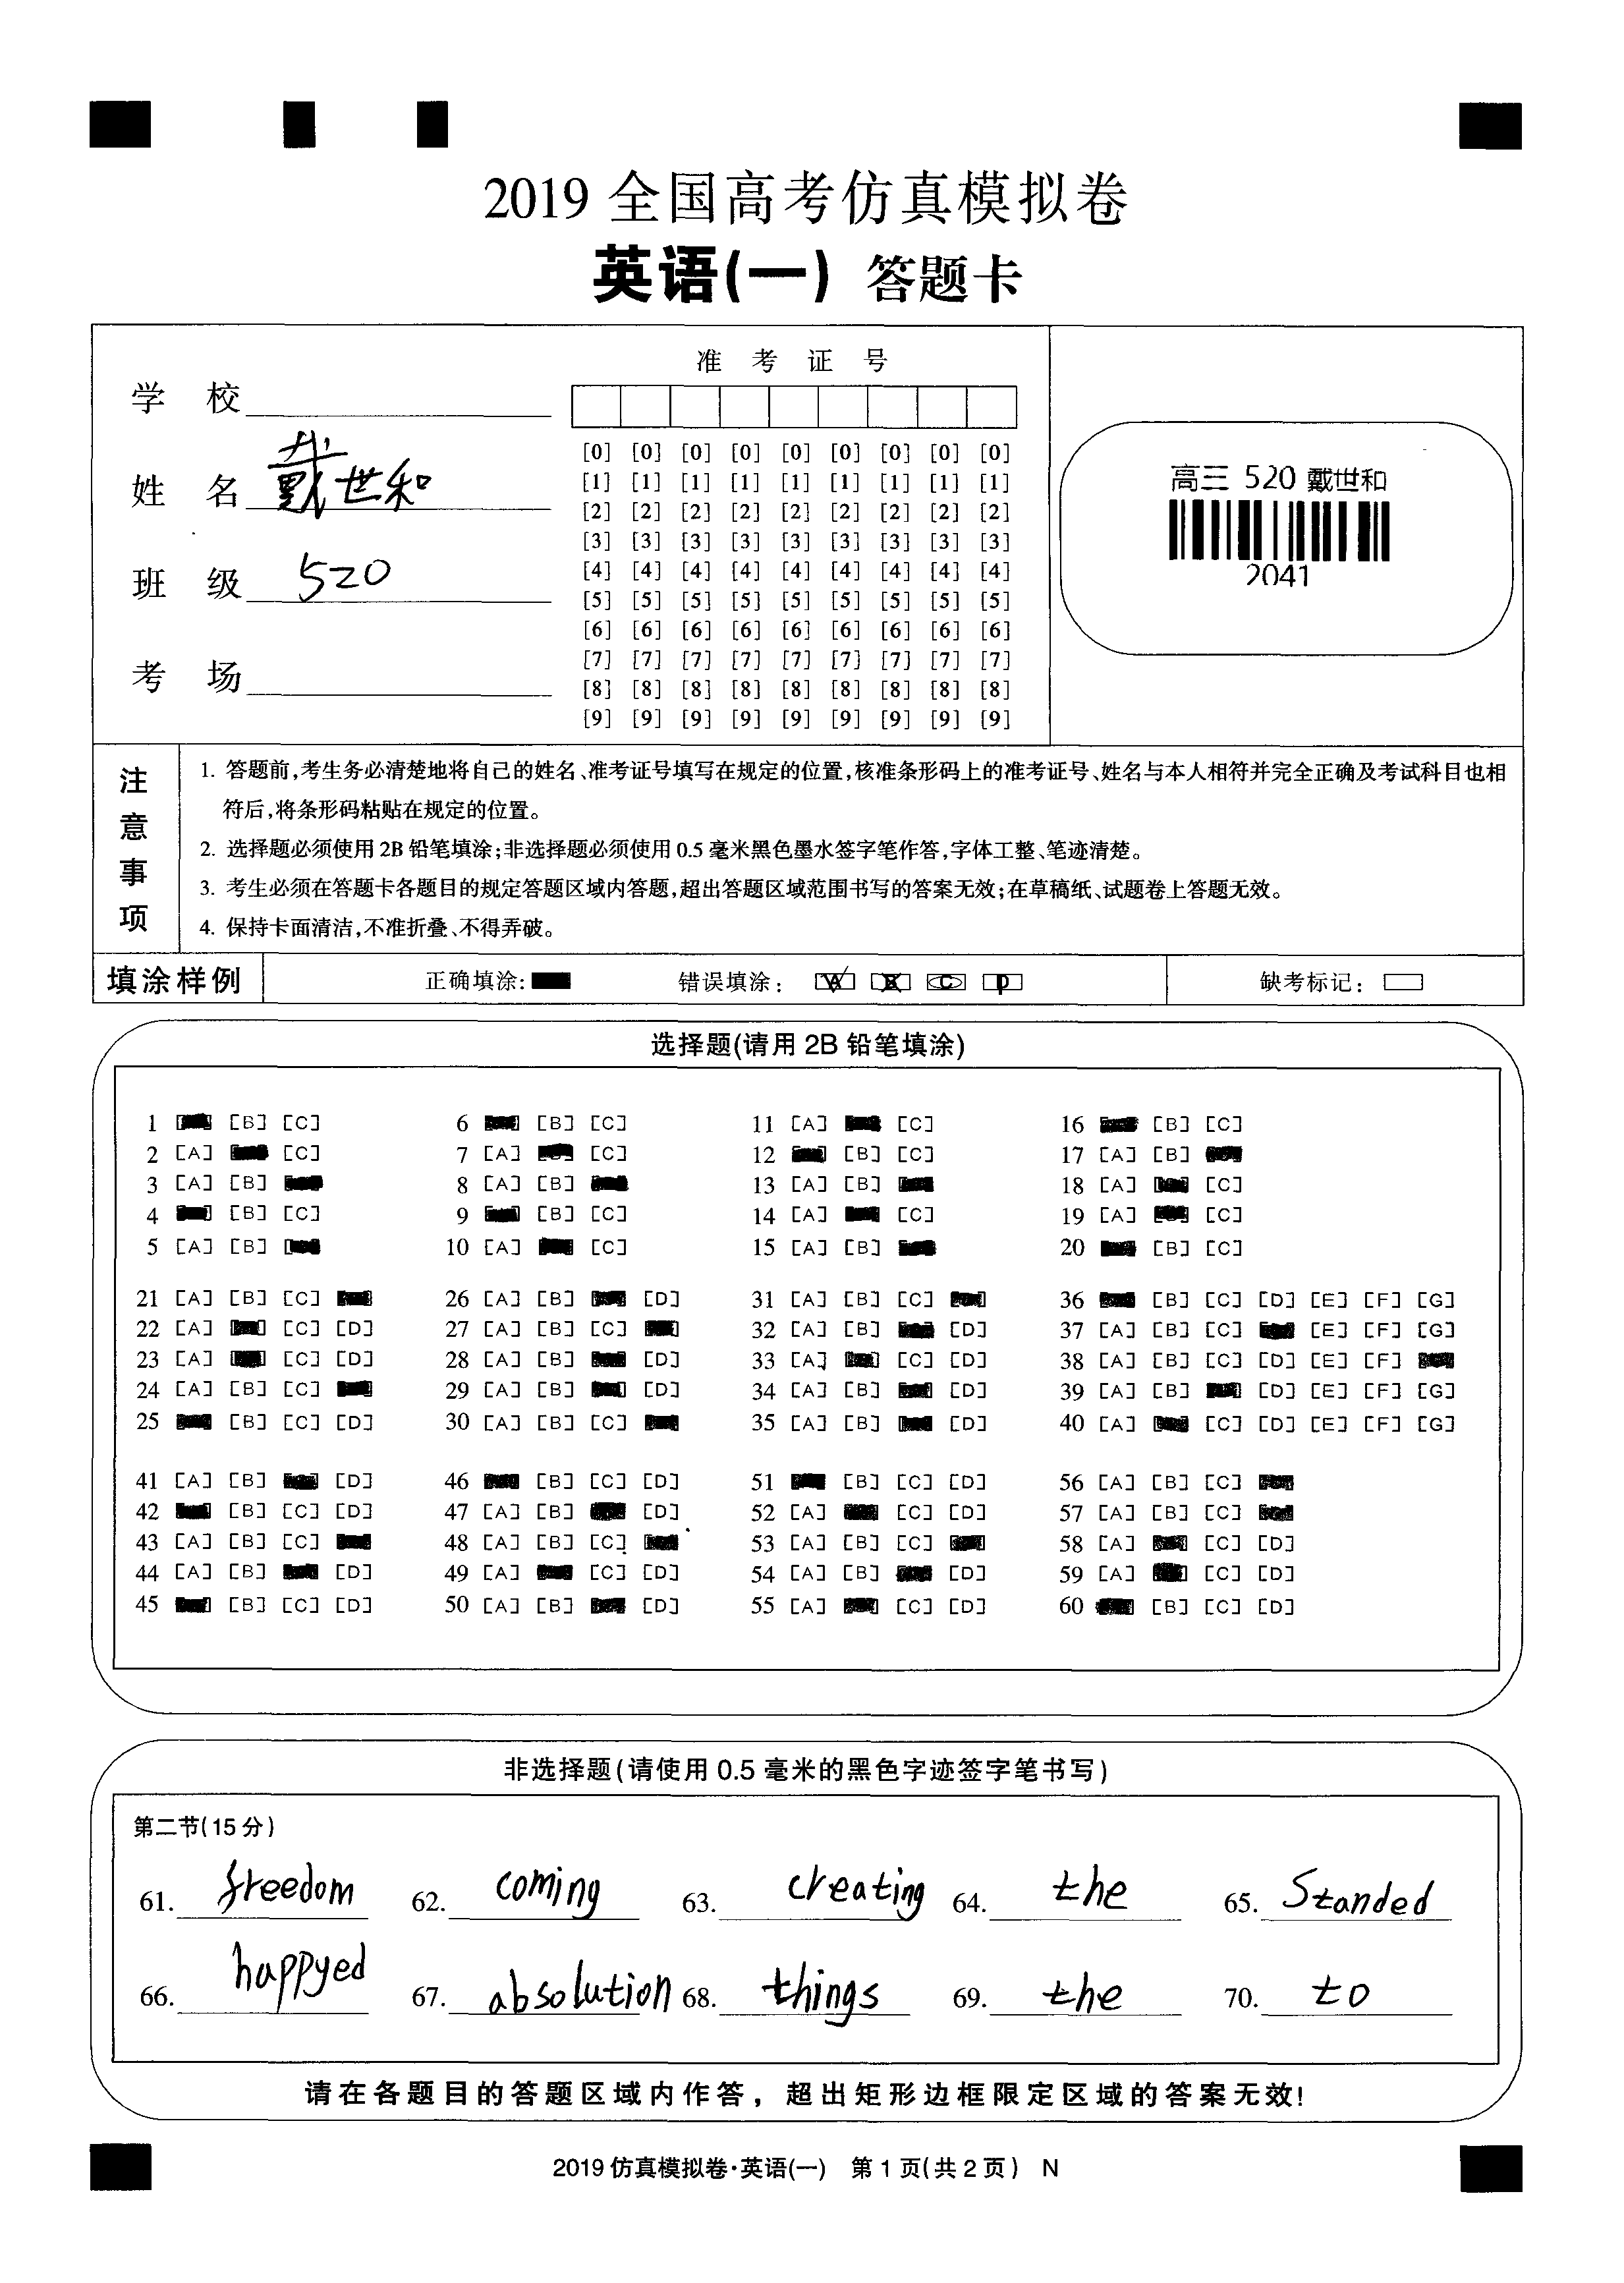 2019 全国高考仿真模拟卷
英语(一) 答题卡
学 校
姓 名 戴世和
班 级 520
考 场
准 考 证 号
[0] [0] [0] [0] [0] [0] [0] [0] [0]
[1] [1] [1] [1] [1] [1] [1] [1] [1]
[2] [2] [2] [2] [2] [2] [2] [2] [2]
[3] [3] [3] [3] [3] [3] [3] [3] [3]
[4] [4] [4] [4] [4] [4] [4] [4] [4]
[5] [5] [5] [5] [5] [5] [5] [5] [5]
[6] [6] [6] [6] [6] [6] [6] [6] [6]
[7] [7] [7] [7] [7] [7] [7] [7] [7]
[8] [8] [8] [8] [8] [8] [8] [8] [8]
[9] [9] [9] [9] [9] [9] [9] [9] [9]
高三 520 戴世和
2041
注意事项
1. 答题前,考生务必清楚地将自己的姓名、准考证号填写在规定的位置,核准条形码上的准考证号、姓名与本人相符并完全正确及考试科目也相
符后,将条形码粘贴在规定的位置。
2. 选择题必须使用 2B 铅笔填涂;非选择题必须使用 0.5 毫米黑色墨水签字笔作答,字体工整、笔迹清楚。
3. 考生必须在答题卡各题目的规定答题区域内答题,超出答题区域范围书写的答案无效;在草稿纸、试题卷上答题无效。
4. 保持卡面清洁,不准折叠、不得弄破。
填涂样例 正确填涂: 错误填涂: A B C D 缺考标记:
选择题(请用 2B 铅笔填涂)
1 [B] [C] 6 [B] [C] 11 [A] [C] 16 [B] [C]
2 [A] [C] 7 [A] [C] 12 [B] [C] 17 [A] [B]
3 [A] [B] 8 [A] [B] 13 [A] [B] 18 [A] [C]
4 [B] [C] 9 [B] [C] 14 [A] [C] 19 [A] [C]
5 [A] [B] 10 [A] [C] 15 [A] [B] 20 [B] [C]
21 [A] [B] [C] 26 [A] [B] [D] 31 [A] [B] [C] 36 [B] [C] [D] [E] [F] [G]
22 [A] [C] [D] 27 [A] [B] [C] 32 [A] [B] [D] 37 [A] [B] [C] [E] [F] [G]
23 [A] [C] [D] 28 [A] [B] [D] 33 [A] [C] [D] 38 [A] [B] [C] [D] [E] [F]
24 [A] [B] [C] 29 [A] [B] [D] 34 [A] [B] [D] 39 [A] [B] [D] [E] [F] [G]
25 [B] [C] [D] 30 [A] [B] [C] 35 [A] [B] [D] 40 [A] [C] [D] [E] [F] [G]
41 [A] [B] [D] 46 [B] [C] [D] 51 [B] [C] [D] 56 [A] [B] [C]
42 [B] [C] [D] 47 [A] [B] [D] 52 [A] [C] [D] 57 [A] [B] [C]
43 [A] [B] [C] 48 [A] [B] [C] 53 [A] [B] [C] 58 [A] [C] [D]
44 [A] [B] [D] 49 [A] [C] [D] 54 [A] [B] [D] 59 [A] [C] [D]
45 [B] [C] [D] 50 [A] [B] [D] 55 [A] [C] [D] 60 [B] [C] [D]
非选择题(请使用 0.5 毫米的黑色字迹签字笔书写)
第二节(15 分)
61. freedom 62. coming 63. creating 64. the 65. Standed
66. happyed 67. absolution 68. things 69. the 70. to
请在各题目的答题区域内作答，超出矩形边框限定区域的答案无效!
2019 仿真模拟卷·英语(一) 第 1 页(共 2 页) N